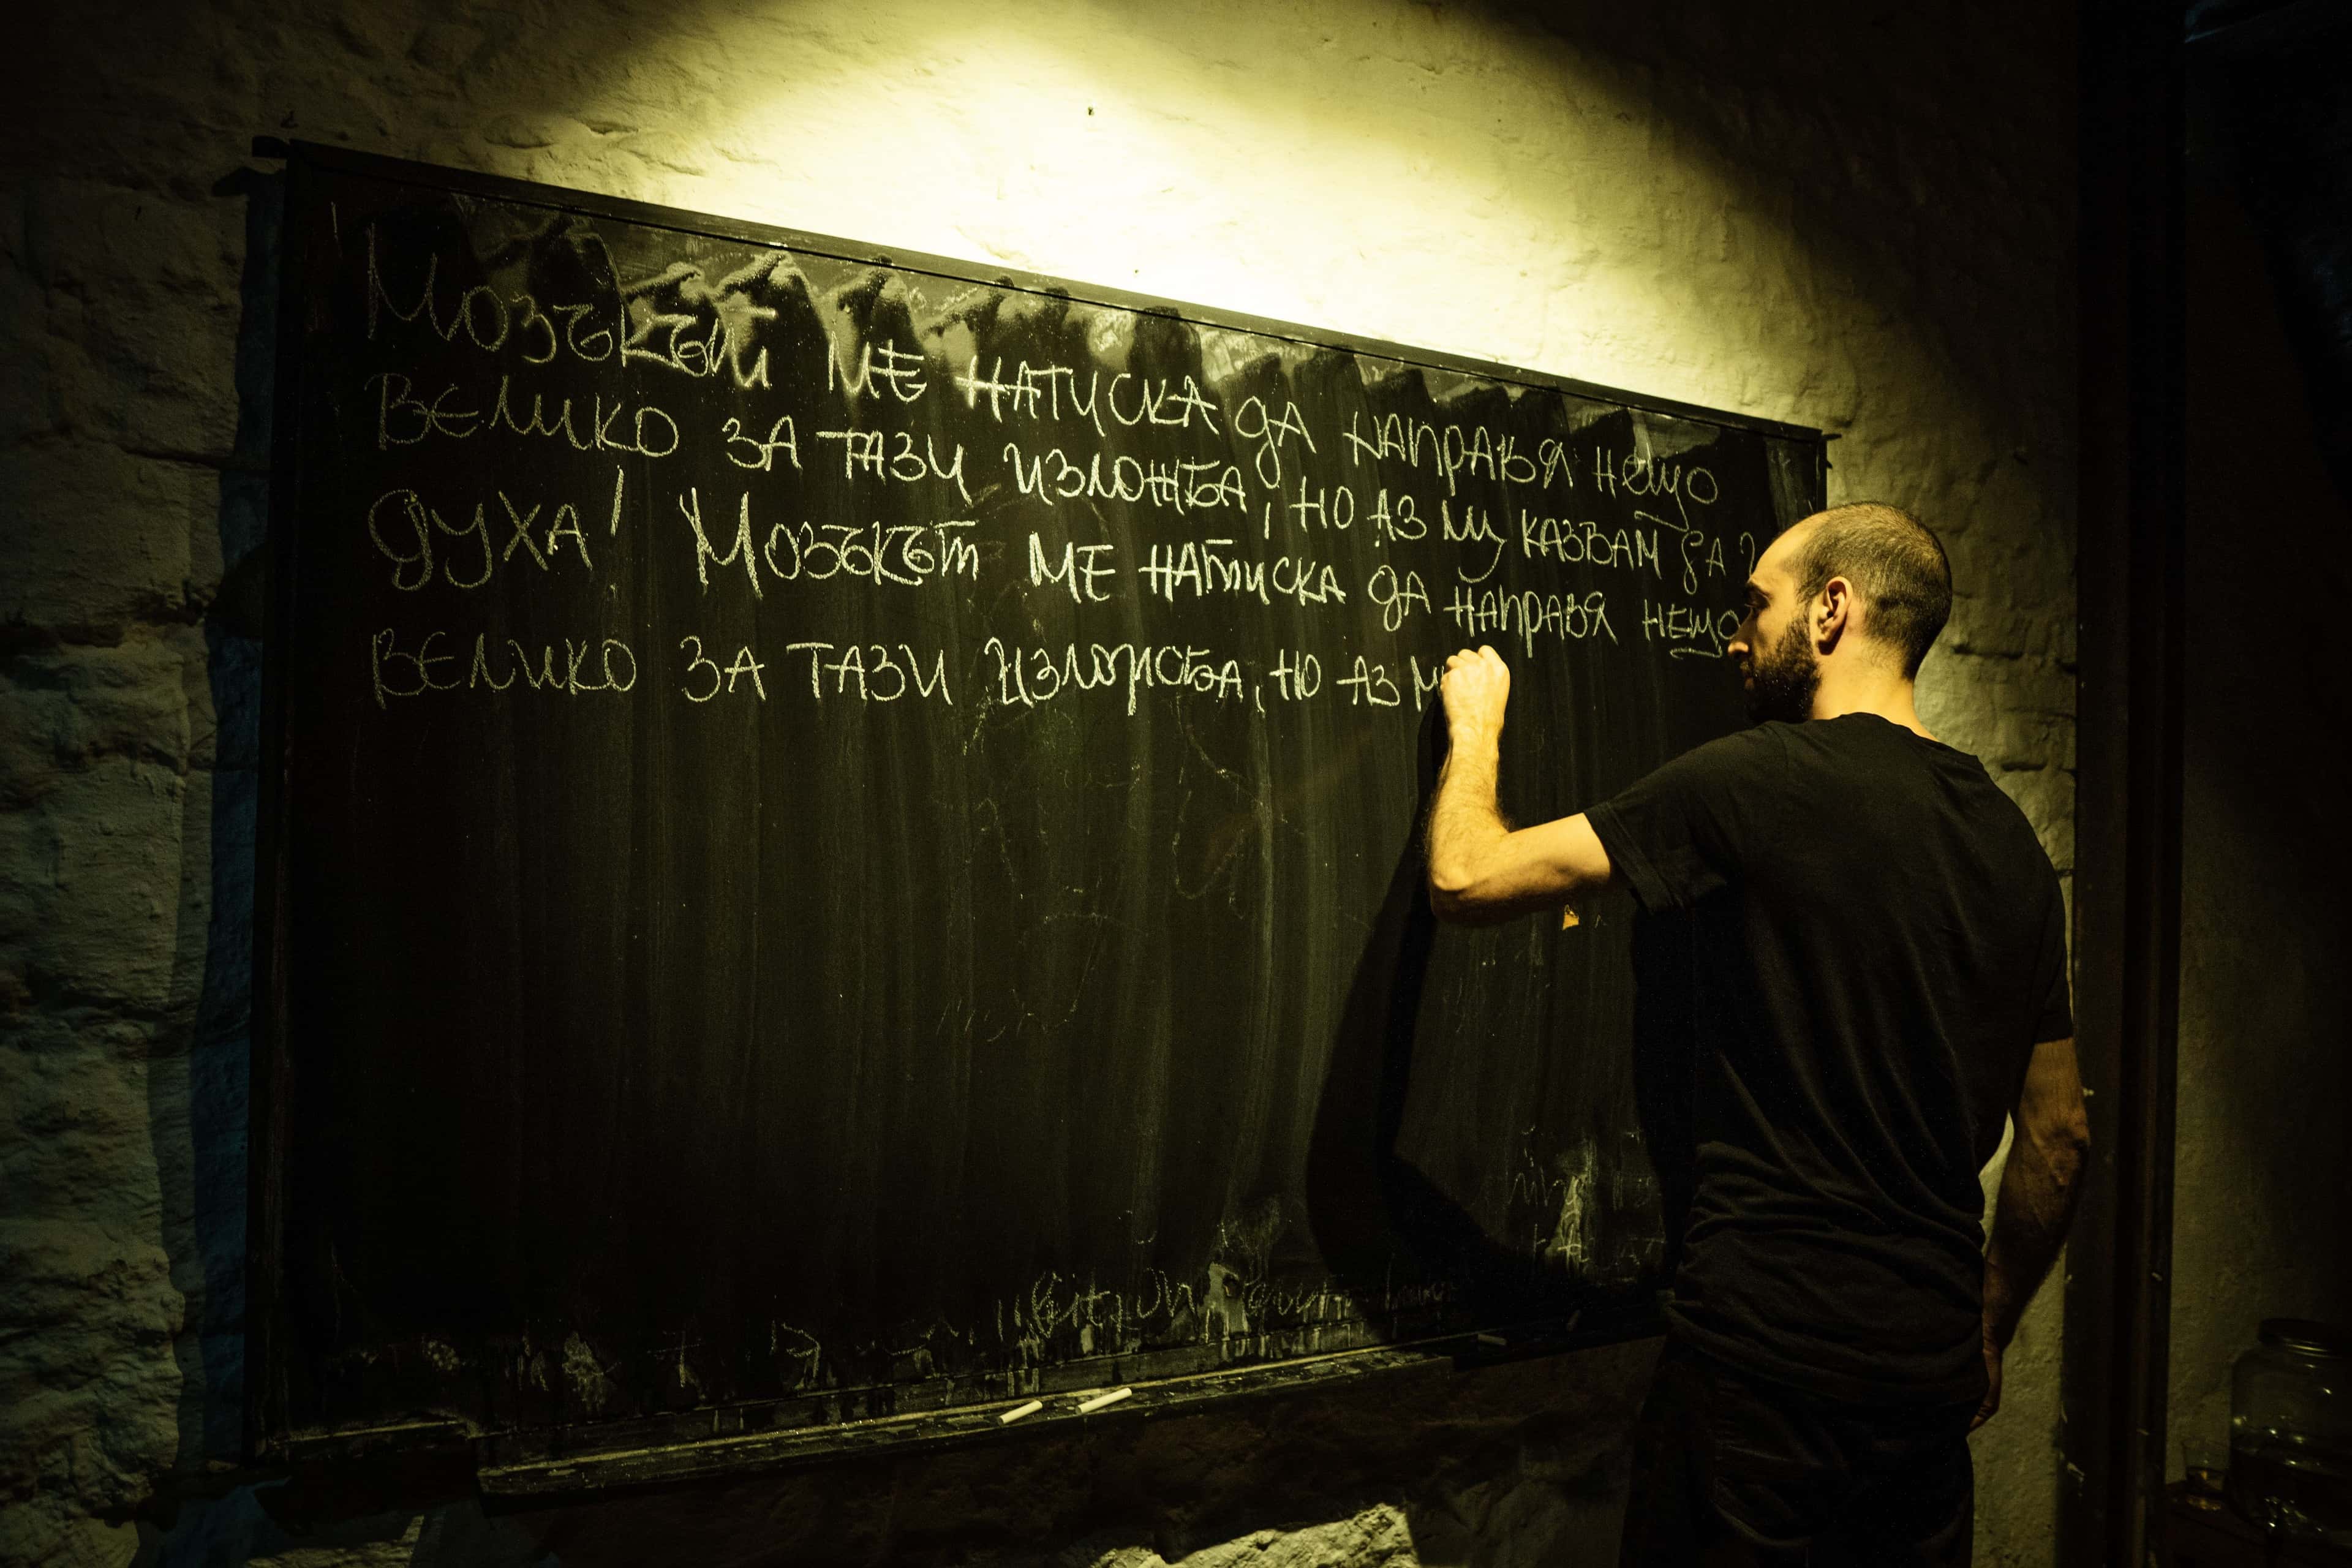 Мозъкът ме натиска да направя нещо
велико за тази изложба, но аз му казвам да
духа! Мозъкът ме натиска да направя нещо
велико за тази изложба, но аз м